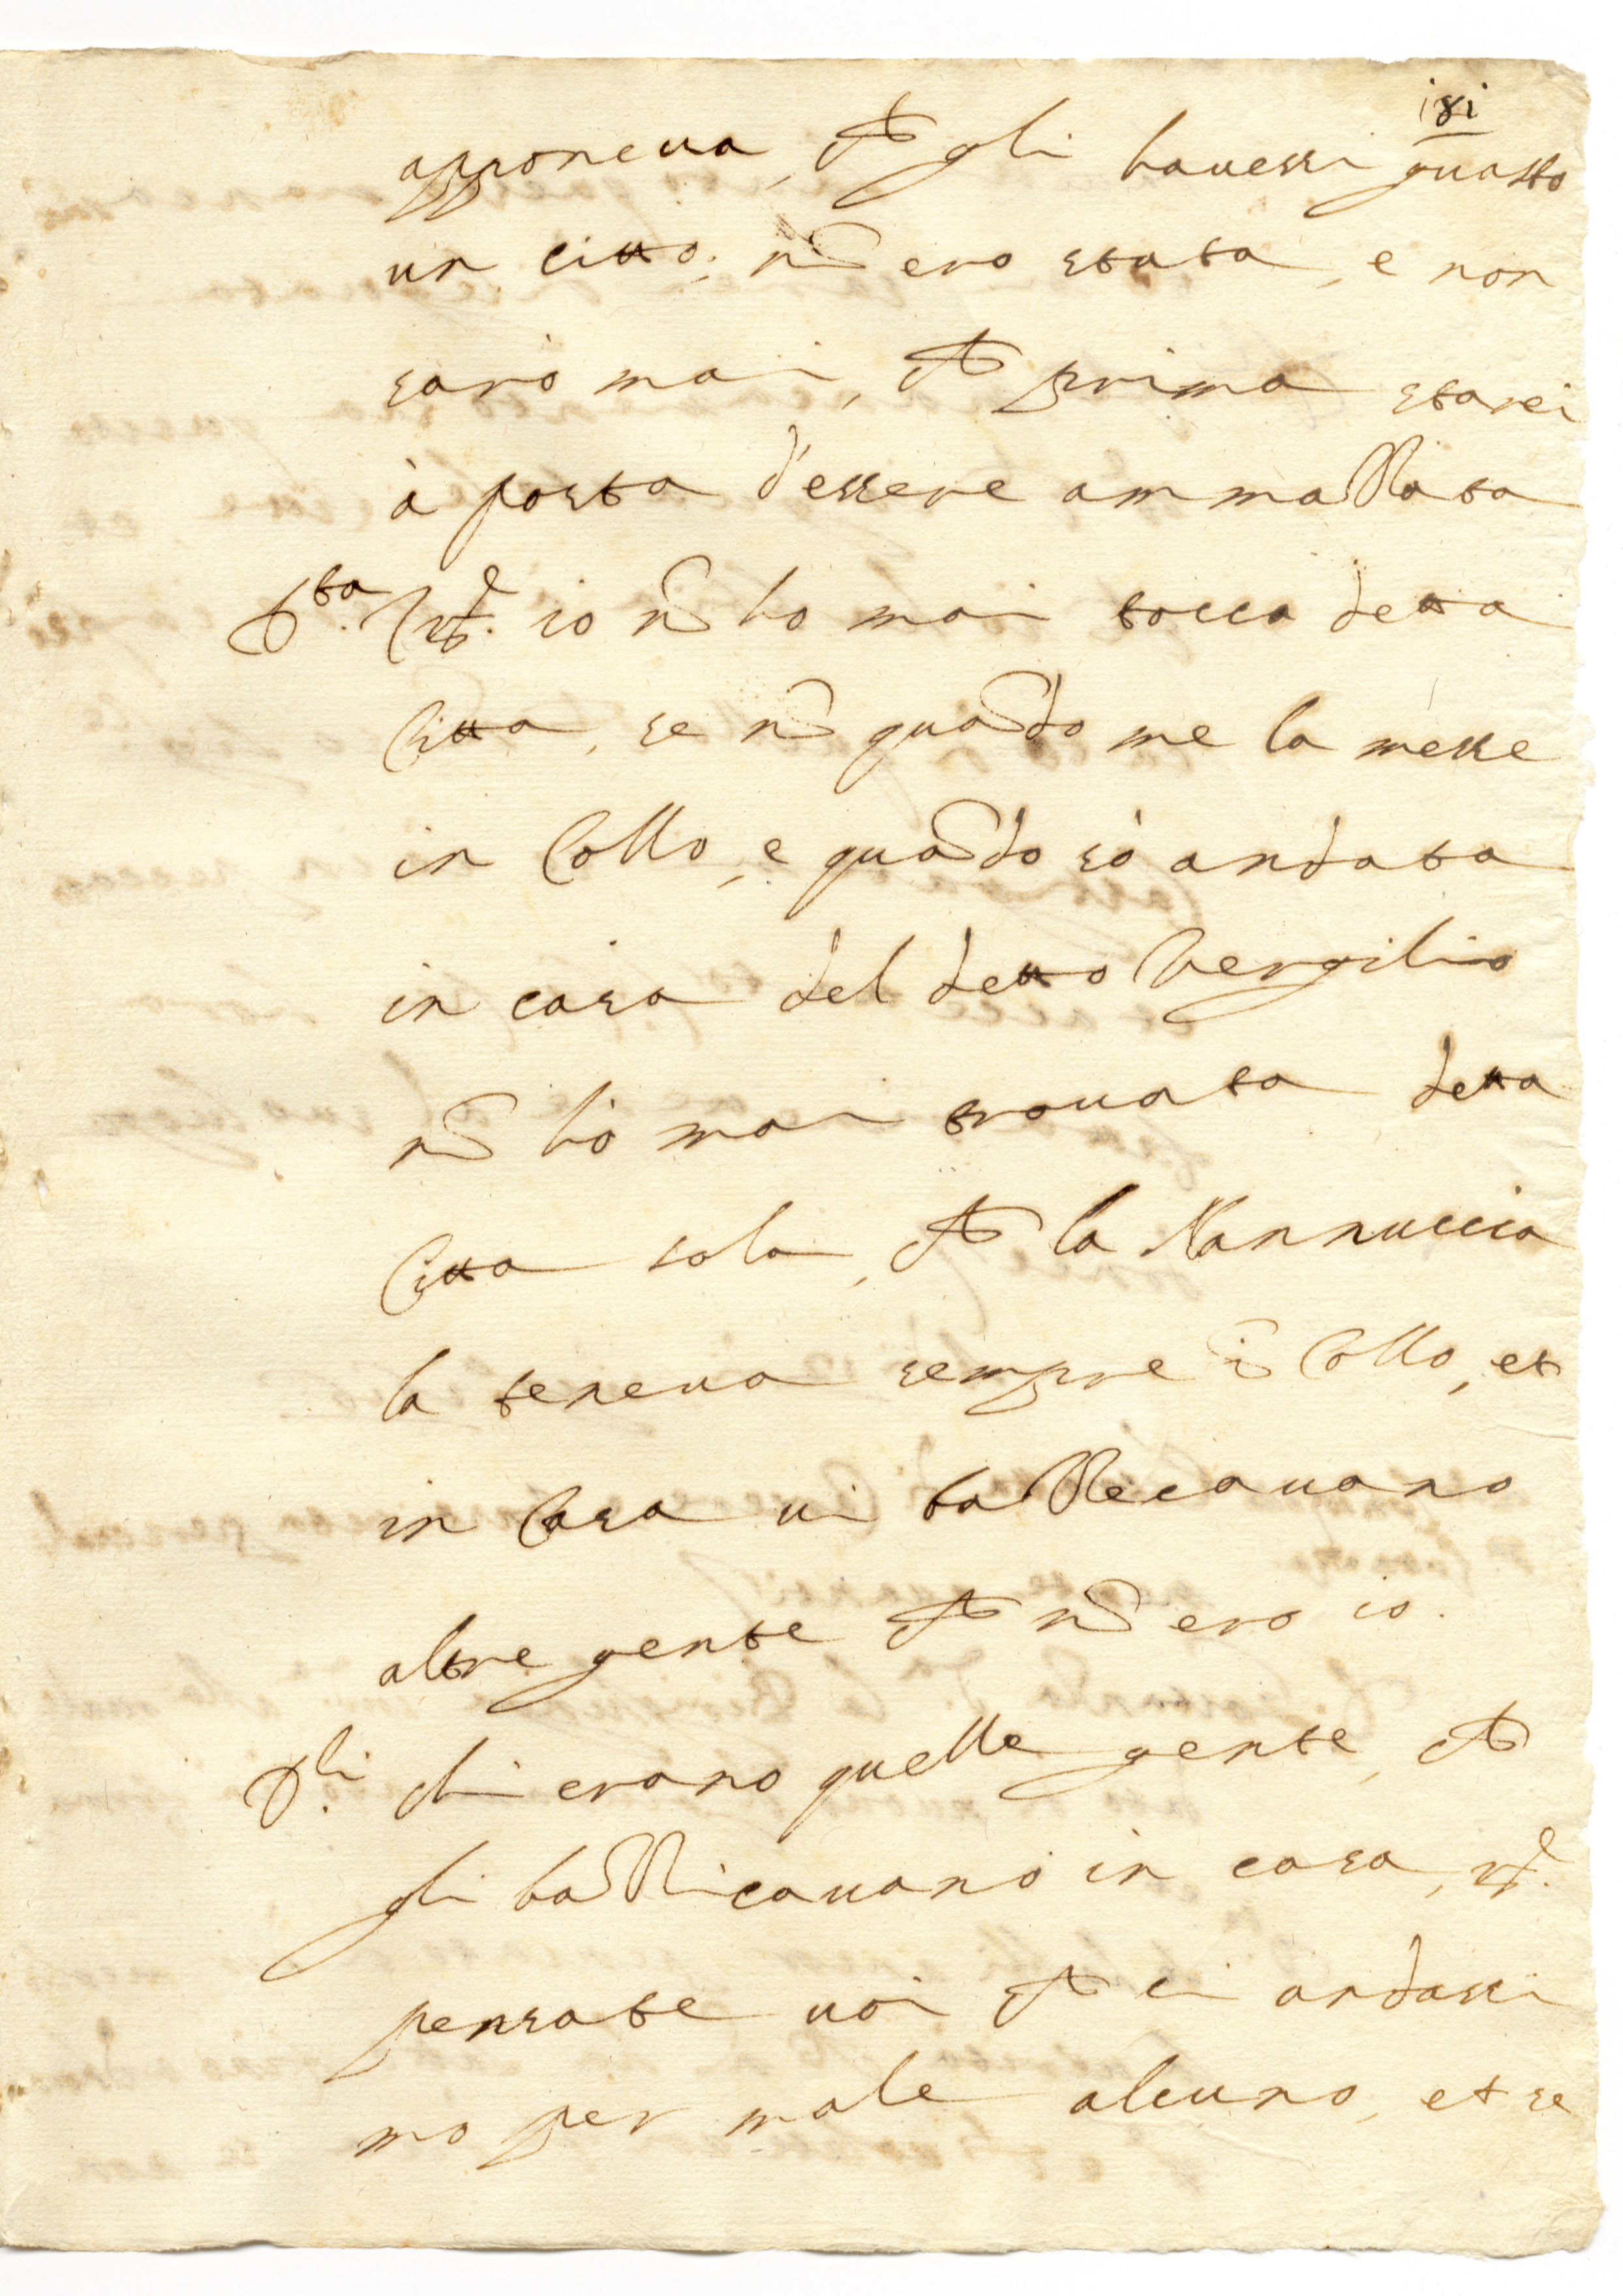 181
apponeua, che gli hauessi guasto
un citto; nõ ero stata, e non
sarò mai, che prima starei
à posta d'essere ammazzata
sta. Rx. io nõ ho mai tocca detta
Citta, se nõ quãdo me la messe
in Collo, e quãdo sò andata
in casa del detto Vergilio
nõ hò mai trouata detta
Citta sola, che la Nannuccia
la teneua sempre ĩ Collo, et
in Casa ui bazzecauano
altre gente che nõ ero io.
li. chi erano quelle gente, che
gli bazzicauano in casa, Rx.
pensate uoi che ci andassi
mo per male alcuno, et se